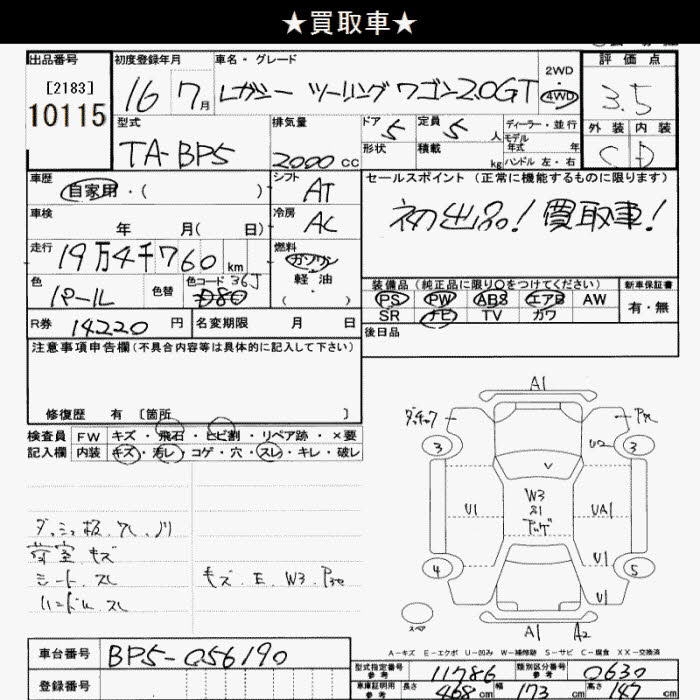 ★買取車★
出品番号 初度登録年月 車名・グレード 2WD 評価点
[2183] 16 7月 レガシー ツーリング ワゴン2.0GT 4WD 3.5
10115
型式 排気量 ドア 5 定員 5 人 ディーラー・並行 外装 内装
TA-BP5 2000 CC 形状 積載 kg モデル年式 年 C D
ハンドル 左・右
車歴 自家用・( ) シフト AT セールスポイント (正常に機能するものに限ります)
車検 年 月( 日) 冷房 AC 初出品! 買取車!
走行 19万4千760 km 燃料 ガソリン
軽油
( )
色 パール 色替 色コード 36J 装備品 (純正品に限り○をつけてください) 新車保証書
PS PW ABS エアB AW 有・無
SR ナビ TV カワ
R券 14220 円 名変期限 月 日 後日品
注意事項申告欄 (不具合内容等は具体的に記入して下さい)
修復歴 有 [箇所 ]
検査員 FW キズ・飛石・ヒビ割・リペア跡・×要
記入欄 内装 キズ・汚レ・コゲ・穴・スレ・キレ・破レ
荷室 キズ
シート スレ
ハンドル スレ
キズ.E.W3.
A1
3 U2 3
W3
U1 UA1
4 U1 5
U1
スペア A1 A2
A-キズ E-エクボ U-凹み W-補修跡 S-サビ C-腐食 XX-交換済
車台番号 BP5-056190
登録番号
型式指定番号 参考 11786 類別区分番号 参考 0630
車庫証明用 参考 長さ 468 cm 幅 173 cm 高さ 147 cm